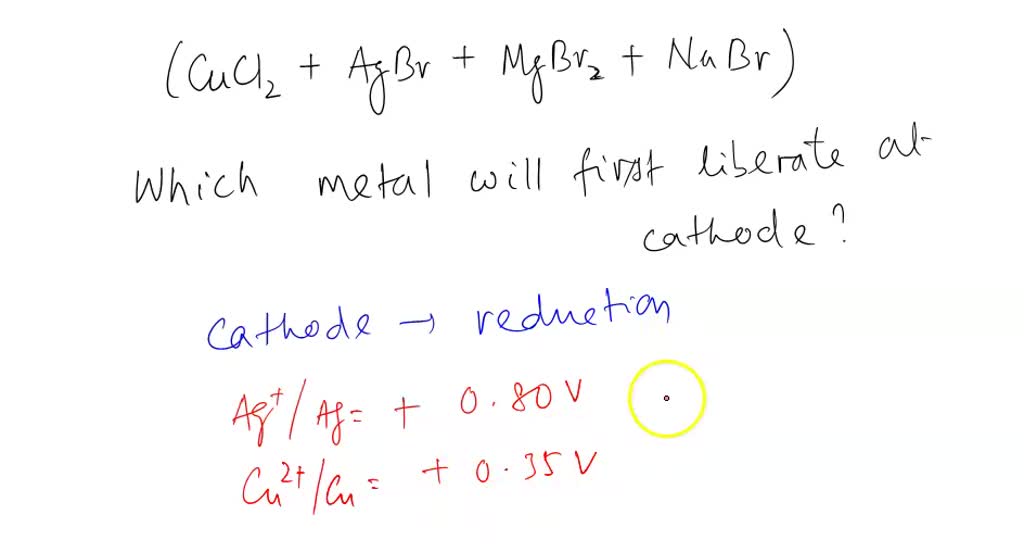 (CuCl₂ + AgBr + MgBr₂ + NaBr)
Which metal will first liberate at
cathode?
cathode → reduction
Ag⁺/Ag = + 0.80 V
Cu²⁺/Cu = + 0.35 V